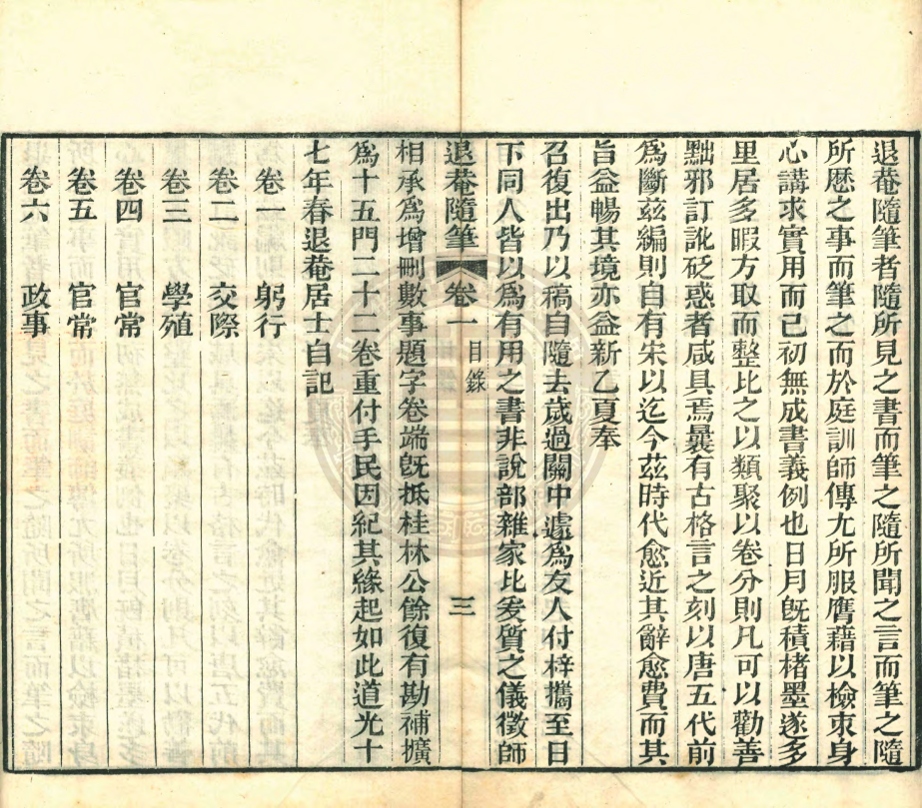 退菴隨筆者隨所見之書而筆之隨所聞之言而筆之隨
所歷之事而筆之而於庭訓師傳尤所服膺藉以檢束身
心講求實用而已初無成書義例也日月旣積楮墨遂多
里居多暇方取而整比之以類聚以卷分則凡可以勸善
黜邪訂訛砭惑者咸具焉曩有古格言之刻以唐五代前
爲斷茲編則自有宋以迄今茲時代愈近其辭愈費而其
旨益暢其境亦益新乙夏奉
召復出乃以稿自隨去歲過關中遽爲友人付梓攜至日
下同人皆以爲有用之書非說部雜家比爰質之儀徵師
退菴隨筆 卷一 目錄 三
相承爲增刪數事題字卷端旣抵桂林公餘復有勘補擴
爲十五門二十二卷重付手民因紀其緣起如此道光十
七年春退菴居士自記
卷一 躬行
卷二 交際
卷三 學殖
卷四 官常
卷五 官常
卷六 政事